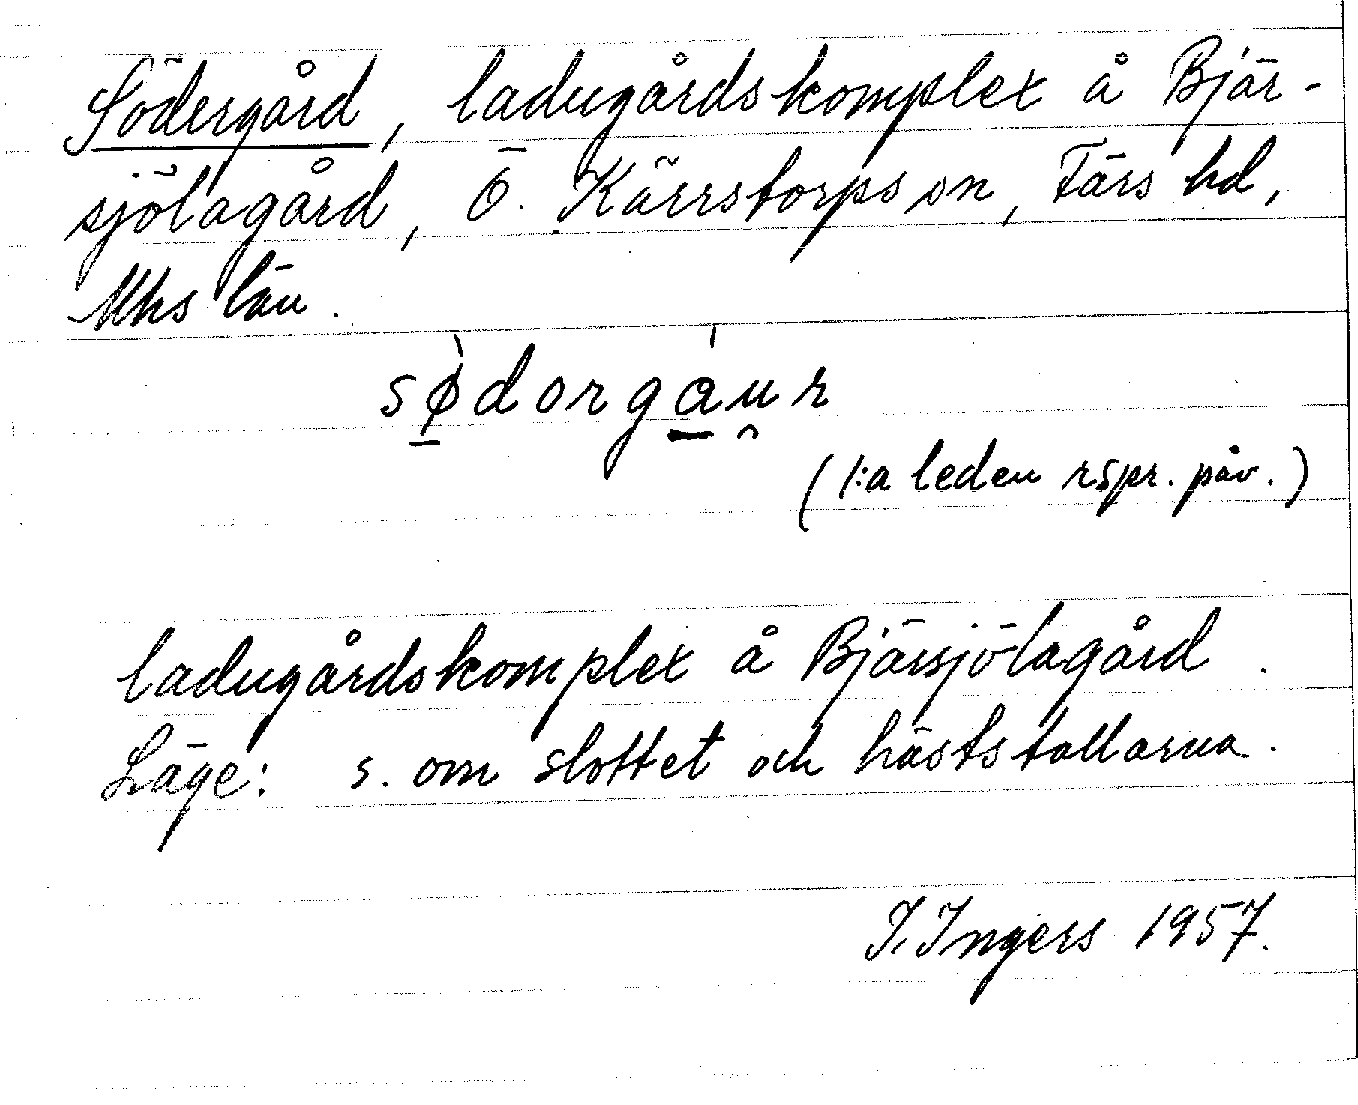 Södergård, ladugårdskomplex å Bjär-
sjölagård, Ö. Kärrstorps sn, Färs hd,
Mhs län.
sø̱̀dorgá̱u̯r
(1:a leden rspr. påv.)
ladugårdskomplex å Bjärsjölagård.
Läge: s. om slottet och häststallarna.
I. Ingers 1957.